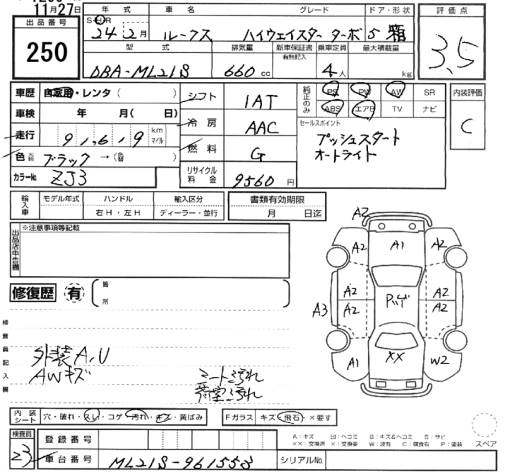 11月27日
出品番号
250
年式 車名 グレード ドア・形状
S・H 24年 2月 ルークス ハイウェイスター ターボ 5 箱
型式 排気量 新車保証書 有無記入 乗車定員 最大積載量
DBA-ML21S 660cc 4人 kg
評価点
3.5
車歴 自家用・レンタ( )
車検 年 月( 日)
走行 91,619 km マイル
色 ブラック→(替)
カラーNo. ZJ3
シフト IAT
冷房 AAC
燃料 G
リサイクル料金 9560円
純正のみ PS PW AW SR
ABS エアB TV ナビ
セールスポイント
プッシュスタート
オートライト
内装評価
C
輸入車 モデル年式 ハンドル 輸入区分
右H・左H ディーラー・並行
書類有効期限
月 日迄
※注意事項等記載
修復歴 有 箇所
検査員記入欄
外装A,U
AWキズ
シート汚れ
荷室汚れ
A2
A2 A1 A2
A2 A2
A3 A2 A2
ルーフ
A1 XX W2
内装シート 穴・破れ・スレ・コゲ・汚れ・キズ・黄ばみ
Fガラス キズ・飛石・×要す
検査員
23
登録番号
車台番号 ML21S-961558
シリアルNo.
A:キズ U:ヘコミ B:キズ&ヘコミ S:サビ
XX:交換済 X:交換要 W:波有 C:腐食有 P:塗装
スペア